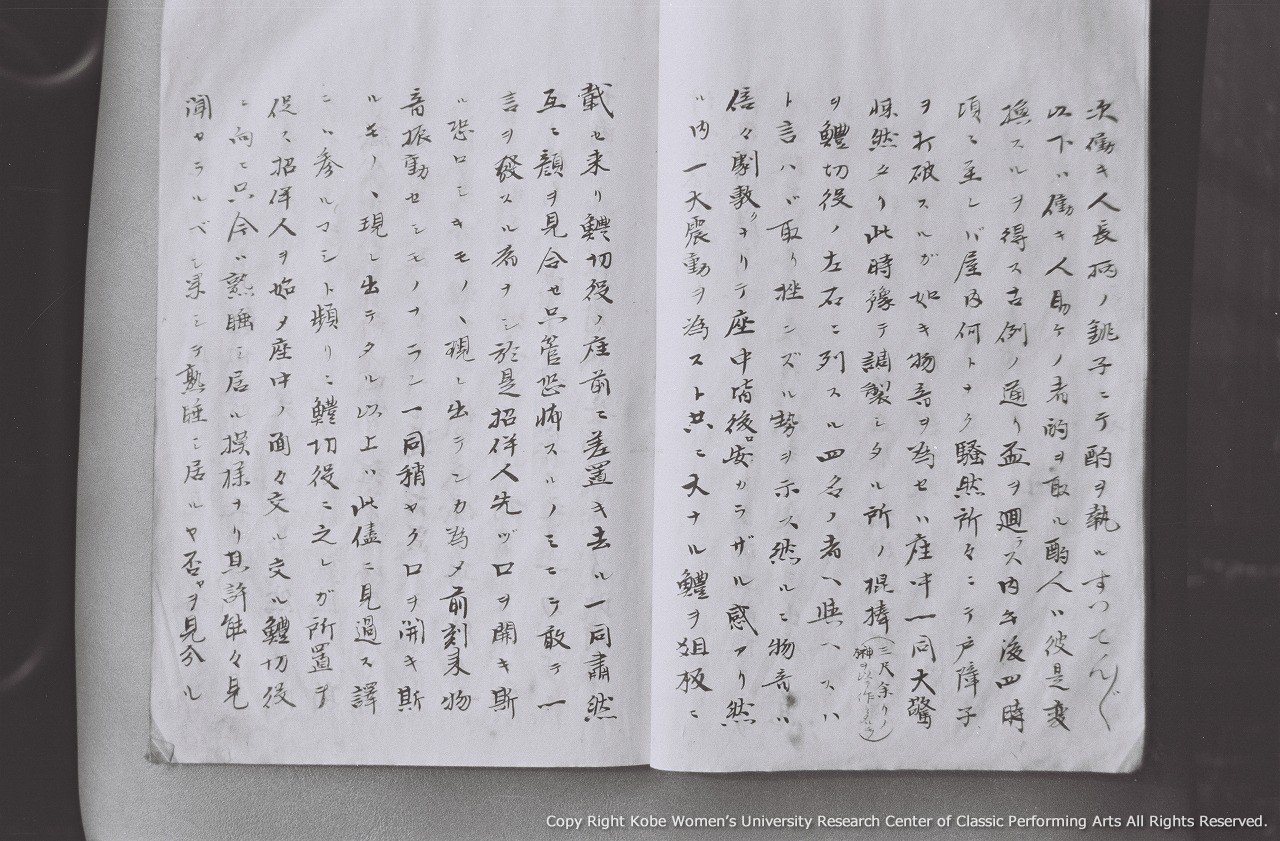 次働キ人長柄ノ銚子ニテ酌ヲ執ルすつてん〳〵
以下ハ働キ人助ケノ者的ヲ取ル酌人ハ彼是変
換スルヲ得ス古例ノ通リ盃ヲ廻ラス内午後四時
頃ニ至レバ屋内何トナク騒然所々ニテ戸障子
ヲ打破スルガ如キ物音ヲ為セハ座中一同大驚
悚然タリ此時豫テ調製シタル所ノ棍捧(三尺余リノ
榊ヲ以作ル)
ヲ鱧切役ノ左右ニ列スル四名ノ者ヘ與ヘスハ
ト言ハバ取リ挫ンズル勢ヲ示ス然ルニ物音ハ
信々劇敷クナリテ座中皆後ロ安カラザル感アリ然
ル内一大震動ヲ為スト共ニ大ナル鱧ヲ俎板ニ
載セ来リ鱧切役ノ座前ニ差置キ去ル一同肅然
互ニ顔ヲ見合セ只管恐怖スルノミニテ敢テ一
言ヲ發スル者ナシ於是招伴人先ヅ口ヲ開キ斯
ル恐ロシキモノヽ現レ出テンカ為メ前刻来物
音振動セシモノナラン一同稍ヤク口ヲ開キ斯
ルモノヽ現レ出テタル以上ハ此儘ニ見過ス譯
ニハ参ルマジト頻リニ鱧切役ニ之レガ所置ヲ
促ス招伴人ヲ始メ座中ノ面々交ル交ル鱧切役
ニ向テ只今ハ熟睡シ居ル模様ナリ其許能々見
聞セラルベシ果シテ熟睡シ居ルヤ否ヤヲ見分ル
Copy Right Kobe Women's University Research Center of Classic Performing Arts All Rights Reserved.